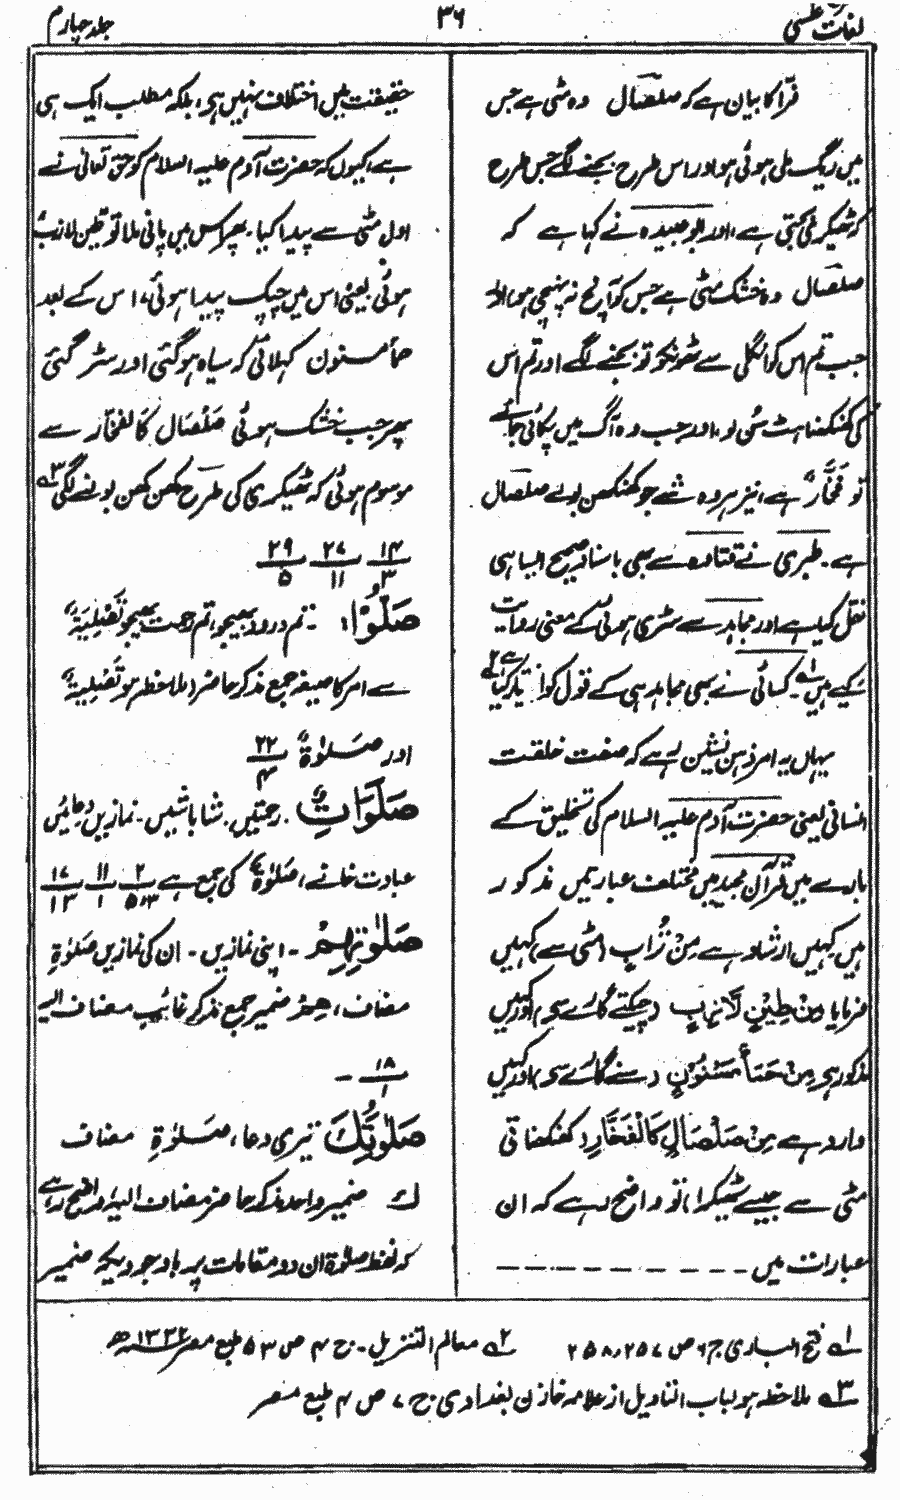 لغات القرآن
۳۶
جلد چہارم
فرّاء کا بیان ہے کہ صلصال وہ مٹی ہے جس
میں ریگ ملی ہوئی ہو اور اس طرح بجنے لگے جس طرح
کہ ٹھیکری بجتی ہے، اور ابوعبیدہ نے کہا ہے کہ
صلصال وہ خشک مٹی ہے جس کو آنچ نہ پہنچی ہو اور
جب تم اس کو انگلی سے ٹھونکو تو بجنے لگے اور تم اس
کی کھنکھناہٹ سُن لو، اور جب وہ آگ میں پکائی جائے
تو فَخَّارٌ ہے، نیز ہر وہ شے جو کھنکھن بولے صلصال
ہے۔ طبری نے قتادہ سے بھی باسناد صحیح ایسا ہی
نقل کیا ہے اور مجاہد سے سٹری ہوئی کے معنی روایت
کیے ہیں ۱؎۔ کسائی نے بھی مجاہد ہی کے قول کو اختیار کیا ہے ۲؎
یہاں یہ امر ذہن نشین رہے کہ صفت خلقت
انسانی یعنی حضرت آدم علیہ السلام کی تخلیق کے
بارے میں قرآن مجید میں مختلف عبارتیں مذکور
ہیں کہیں ارشاد ہے مِنْ تُرَابٍ (مٹی سے) کہیں
فرمایا مِنْ طِيْنٍ لَّازِبٍ (چپکتے گارے سے) اور کہیں
مذکور ہے مِنْ حَمَأٍ مَّسْنُوْنٍ (سنے گارے سے) اور کہیں
وارد ہے مِنْ صَلْصَالٍ كَالْفَخَّارِ (کھنکھناتی
مٹی سے جیسے ٹھیکرا) تو واضح رہے کہ ان
عبارات میں
حقیقت میں اختلاف نہیں ہے، بلکہ مطلب ایک ہی
ہے، کیوں کہ حضرت آدم علیہ السلام کو حق تعالیٰ نے
اول مٹی سے پیدا کیا۔ پھر اس میں پانی ملا تو طین لازب
ہوئی یعنی اس میں چپک پیدا ہوئی، اس کے بعد
حمأ مسنون کہلائی کہ سیاہ ہوگئی اور سڑ گئی
پھر جب خشک ہوئی صَلْصَال كَالفخّار سے
موسوم ہوئی کہ ٹھیکری کی طرح کھن کھن بولنے لگی ۳؎
۱۴/۳ ۲۷/۱۱ ۲۹/۵
صَلُّوْا: تم درود بھیجو، تم رحمت بھیجو تَصْلِيَةٌ
سے امر کا صیغہ جمع مذکر حاضر (ملاحظہ ہو تَصْلِيَةٌ
اور صَلٰوةٌ) ۲۲/۴
صَلَوَاتٌ: رحمتیں، ثنا باشیں، نمازیں، دعائیں
عبادت خانے، صَلٰوةٌ کی جمع ہے ۲/۳،۵ ۱۱/۱ ۱۷/۱۳
صَلٰوتِهِمْ۔ اپنی نمازیں۔ ان کی نمازیں صَلٰوةِ
مضاف، هِمْ ضمیر جمع مذکر غائب مضاف الیہ
۱۸/۱ ۔
صَلٰوتُكَ تیری دعا، صَلٰوةِ مضاف
ك ضمیر واحد مذکر حاضر مضاف الیہ، واضح رہے
کہ لفظ صلٰوة ان دو مقامات پر باوجودیکہ ضمیر
۱؎ فتح الباری ج ۶ ص ۲۵۷، ۲۵۸ ۲؎ معالم التنزیل۔ ج ۴ ص ۵۳ طبع مصر ۱۳۳۲ھ
۳؎ ملاحظہ ہو لباب التاویل از علامہ خازن بغدادی ج ۷ ص ۴ طبع مصر